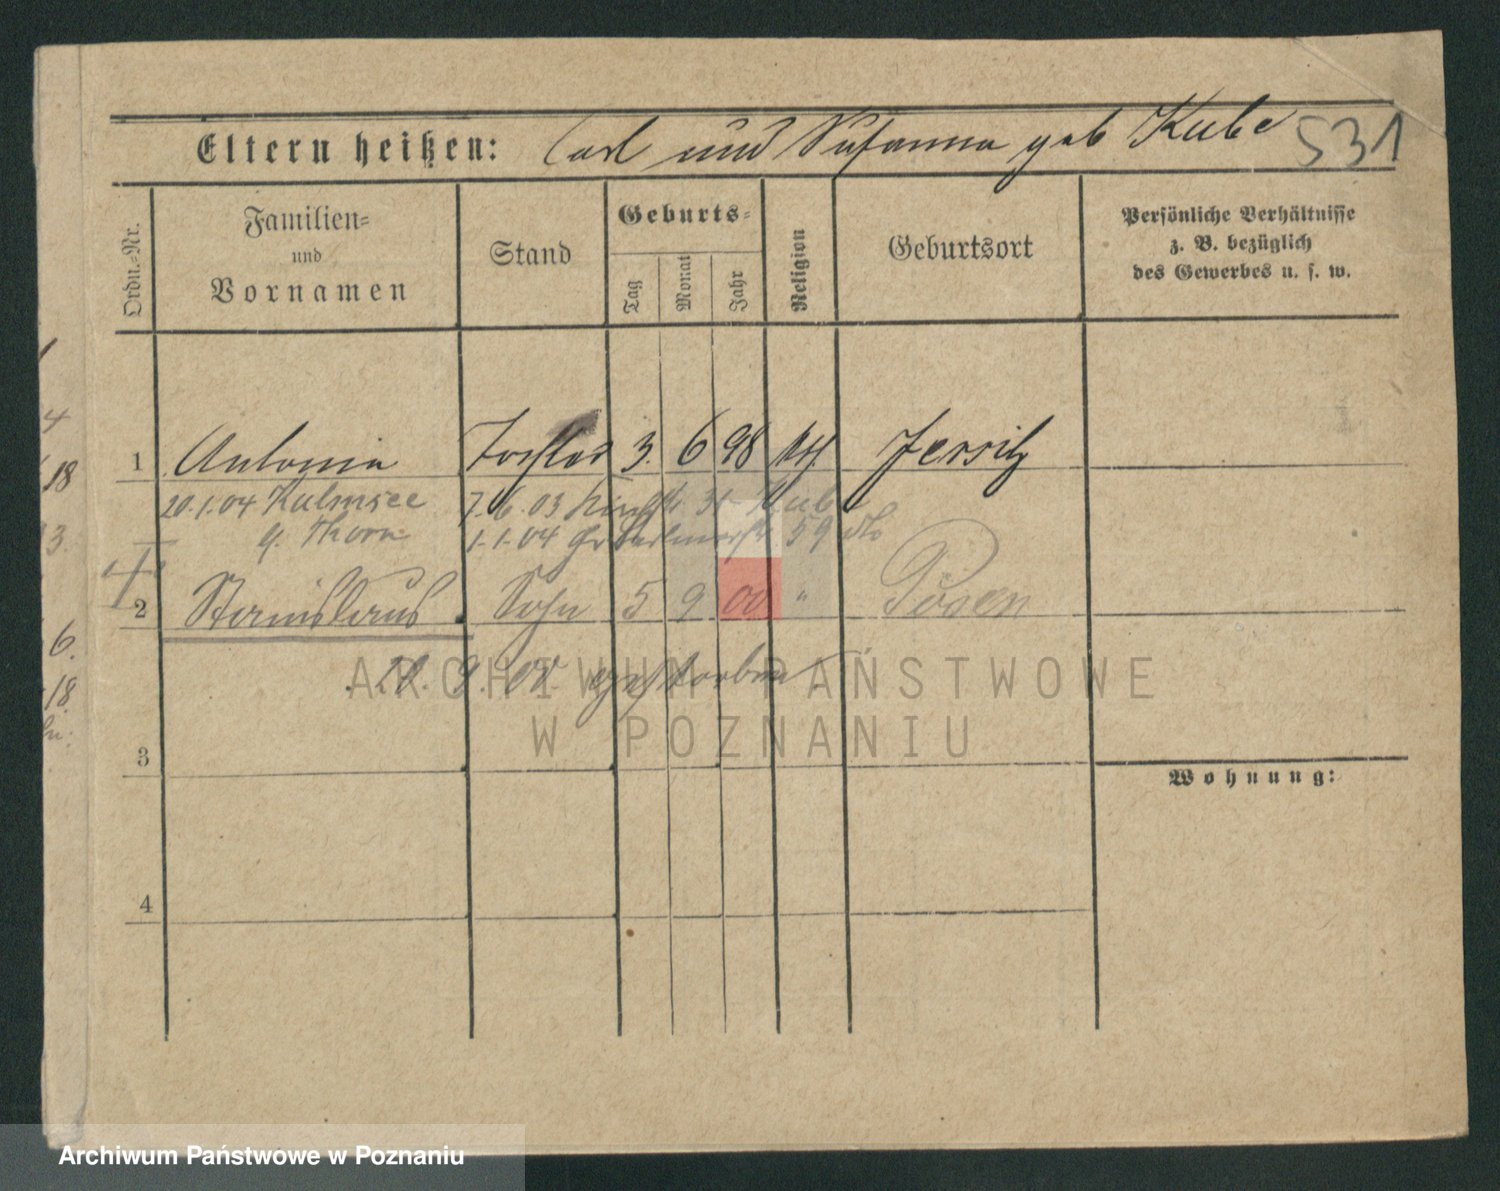 Eltern heißen: Carl und Susanna geb Kube 531
Ordn.-Nr.
Familien-
und
Vornamen
Stand
Geburts-
Tag
Monat
Jahr
Religion
Geburtsort
Persönliche Verhältnisse
z. B. bezüglich
des Gewerbes u. s. w.
1 Antonia Tochter 3. 6 98 kth. Jersitz
20.1.04 Kulmsee 7.6.03 31
Thorn 1.1.04 59
2 Stanislaus Sohn 5 9 00 " Posen
9. 00. gestorben
3
Wohnung:
4
4
18
3.
6.
18.
ARCHIWUM PAŃSTWOWE
W POZNANIU
Archiwum Państwowe w Poznaniu